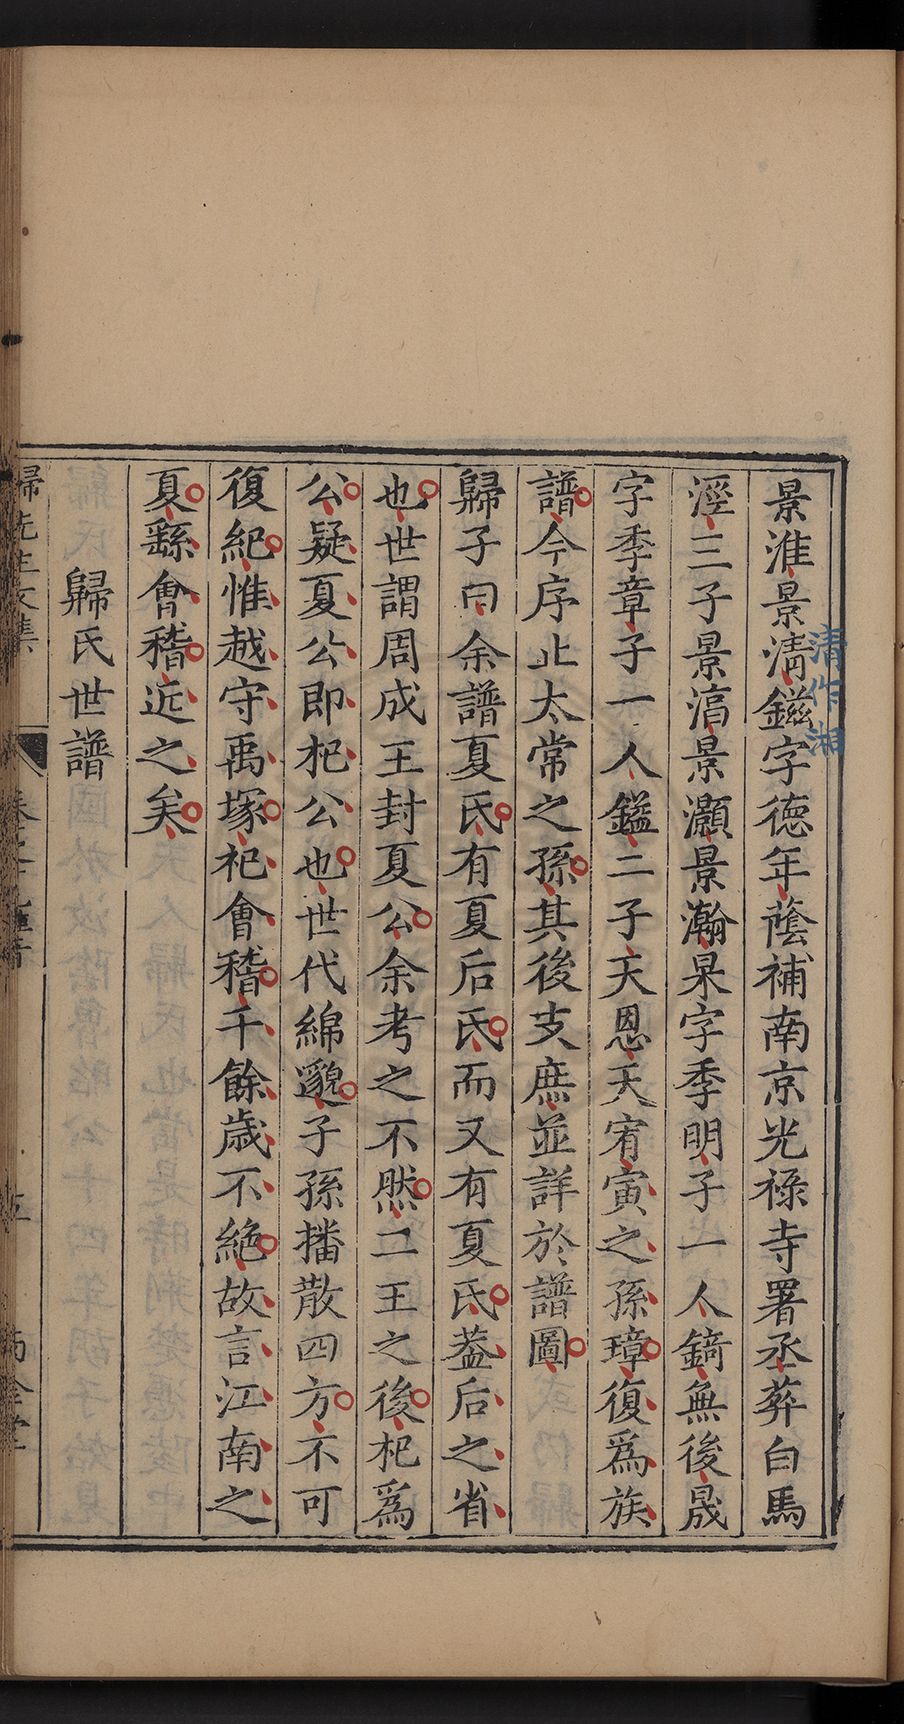 景淮景淸鎡字德年蔭補南京光祿寺署丞葬白馬
涇三子景滈景灝景瀚杲字季明子一人鏑無後晟
字季章子一人鎰二子天恩天宥寅之孫璋復爲族
譜今序止太常之孫其後支庶並詳於譜圖
歸子曰余譜夏氏有夏后氏而又有夏氏葢后之省
也世謂周成王封夏公余考之不然二王之後杞爲
公疑夏公卽杞公也世代綿邈子孫播散四方不可
復紀惟越守禹塚祀會稽千餘歲不絕故言江南之
夏繇會稽近之矣
歸氏世譜
清作湘